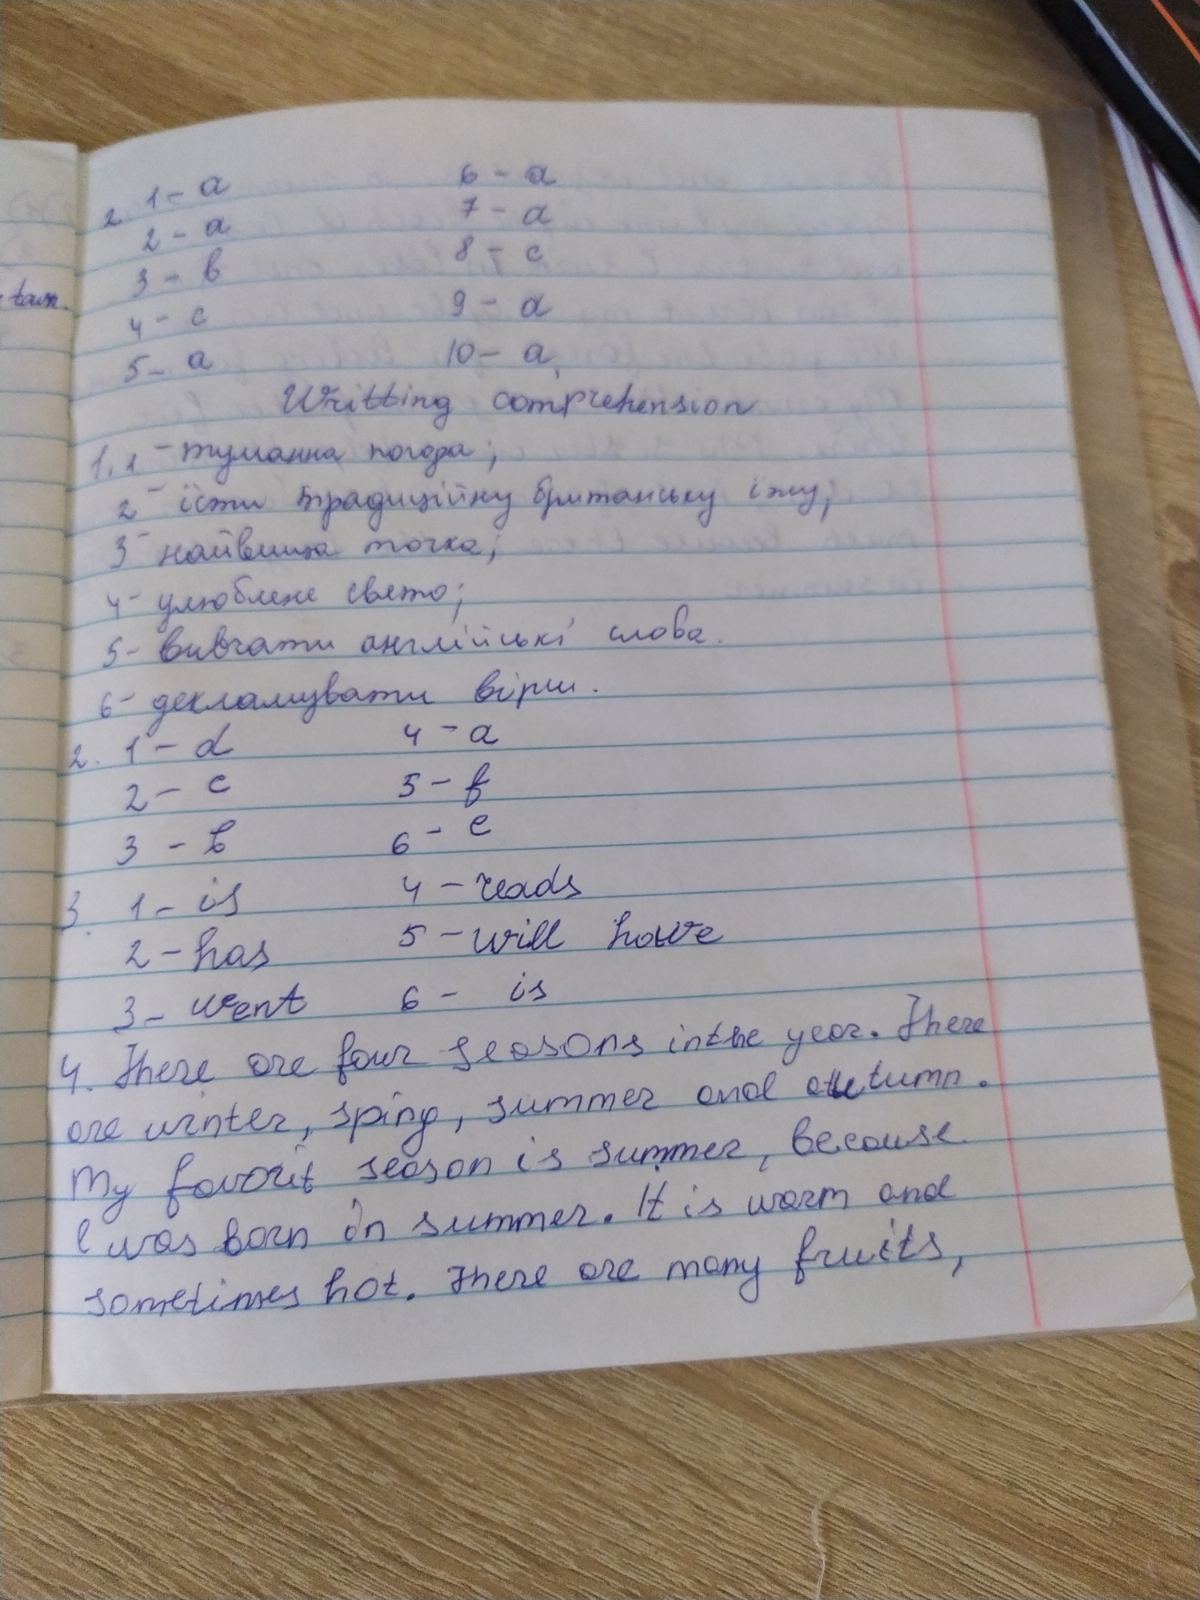 2. 1 - a 6 - a
2 - a 7 - a
3 - b 8 - c
4 - c 9 - a
5 - a 10 - a
Writting comprehension
1. 1 - туманна погода;
2 - їсти традиційну британську їжу;
3 - найвища точка;
4 - улюблене свято;
5 - вивчати англійські слова.
6 - декламувати вірш.
2. 1 - d 4 - a
2 - c 5 - f
3 - b 6 - e
3. 1 - is 4 - reads
2 - has 5 - will have
3 - went 6 - is
4. There are four seasons in the year. There
are winter, sping, summer and autumn.
My favorit season is summer, because
I was born in summer. It is warm and
sometimes hot. There are many fruits,